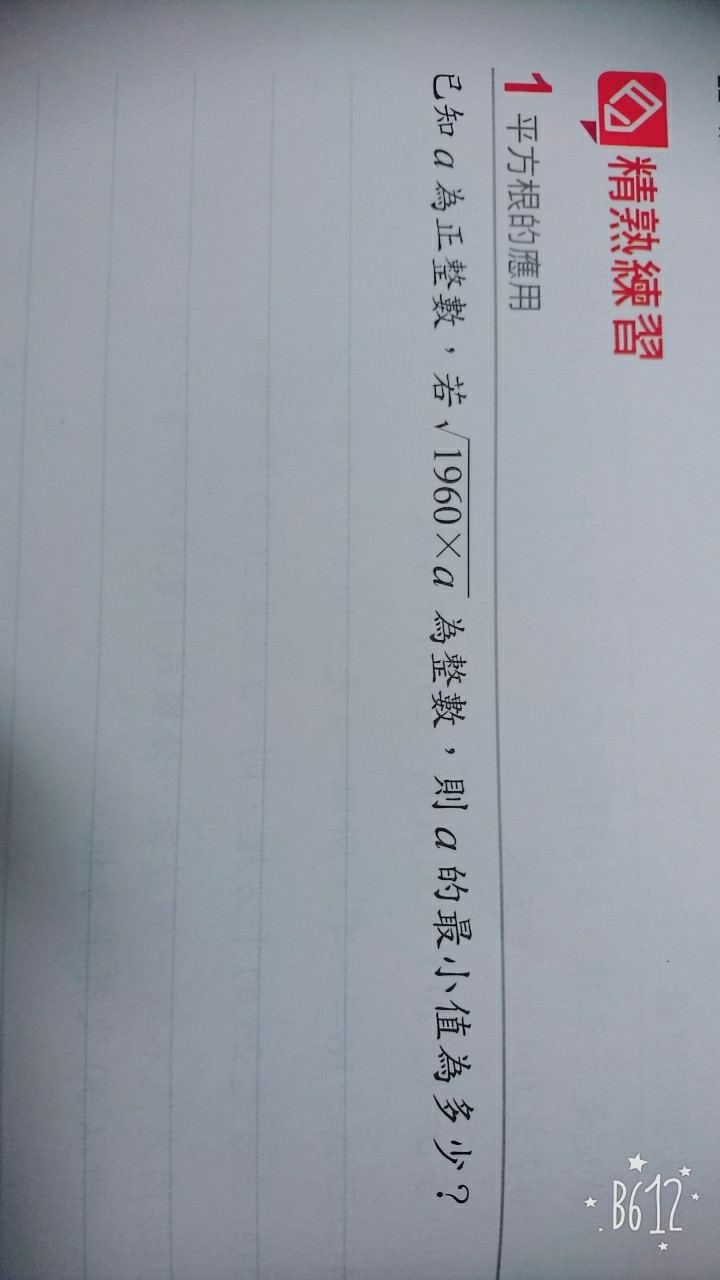 精熟練習
1 平方根的應用
已知 a 為正整數，若 √1960×a 為整數，則 a 的最小值為多少？
B612